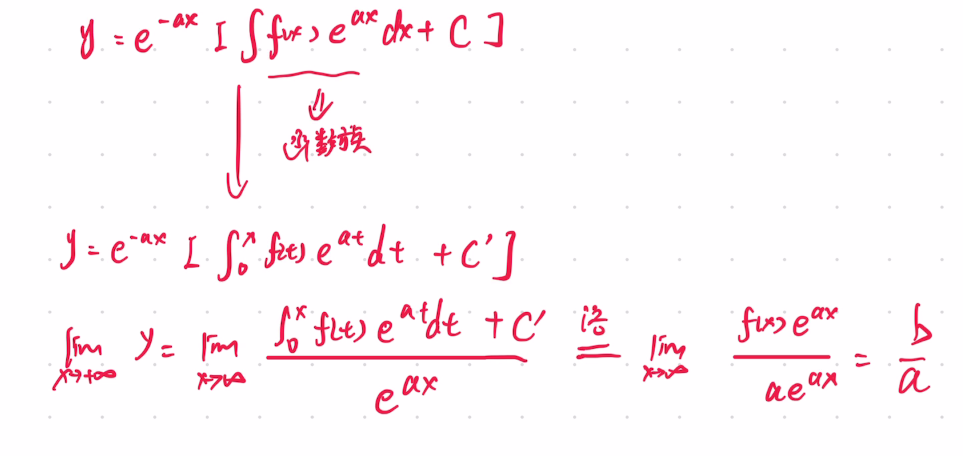 y = e^{-ax} [ ∫f(x) e^{ax} dx + C ]
⇓
函数族
↓
y = e^{-ax} [ ∫_0^x f(t) e^{at} dt + C' ]
lim_{x→+∞} y = lim_{x→∞} \frac{∫_0^x f(t) e^{at} dt + C'}{e^{ax}} \overset{洛}{=} lim_{x→∞} \frac{f(x) e^{ax}}{a e^{ax}} = \frac{b}{a}